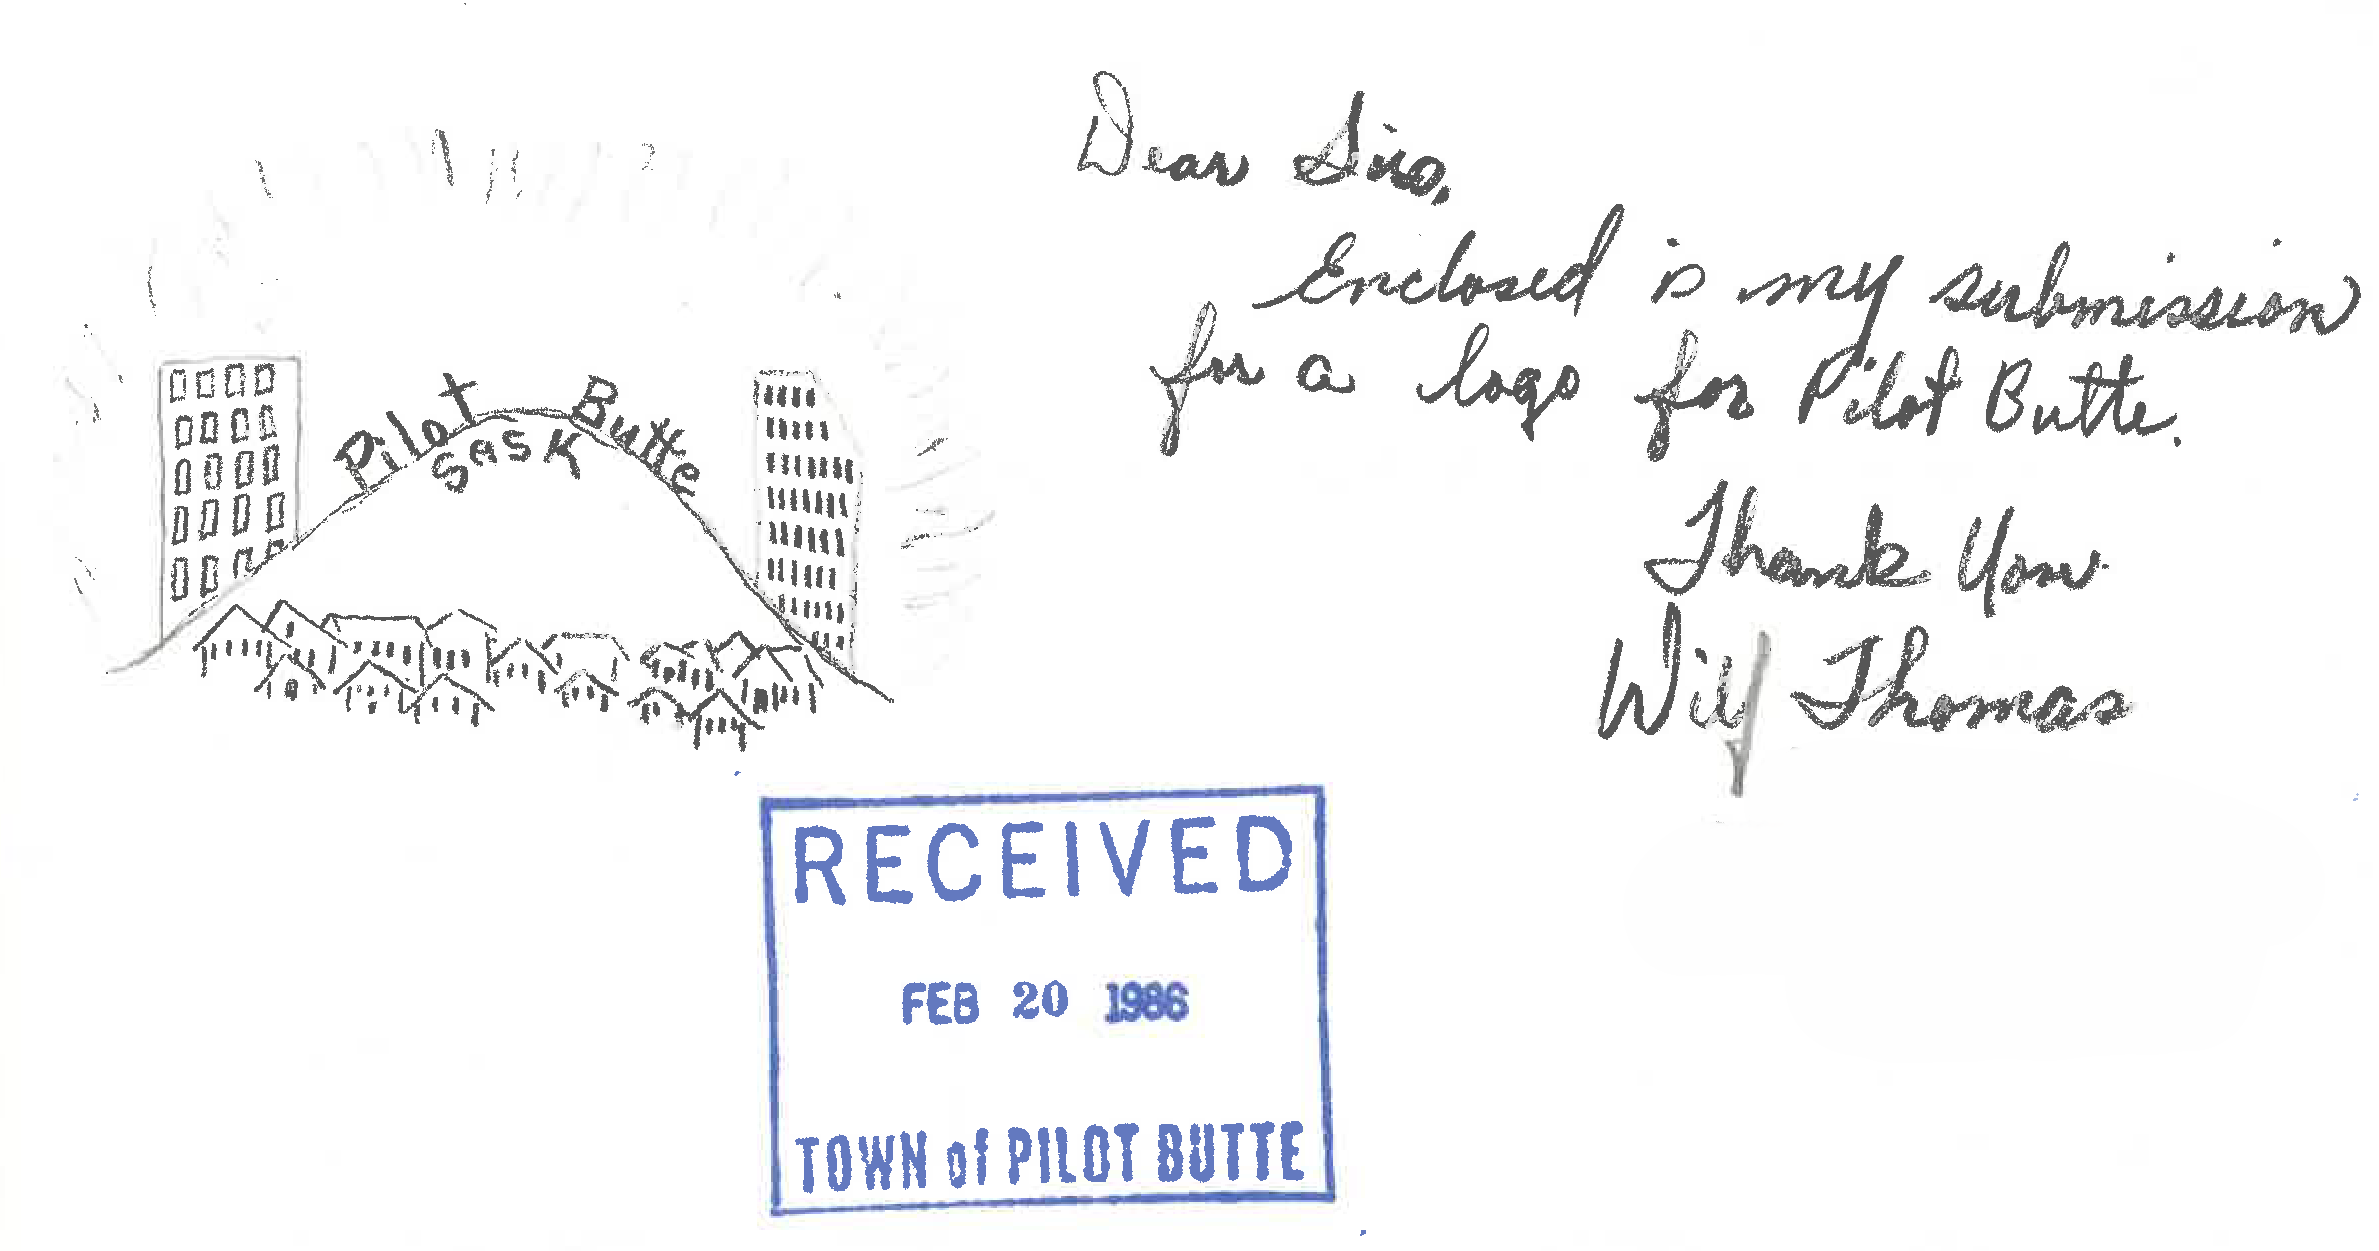 Pilot Butte
Sask
Dear Sirs,
Enclosed is my submission
for a logo for Pilot Butte.
Thank You
Wilf Thomas
RECEIVED
FEB 20 1986
TOWN of PILOT BUTTE